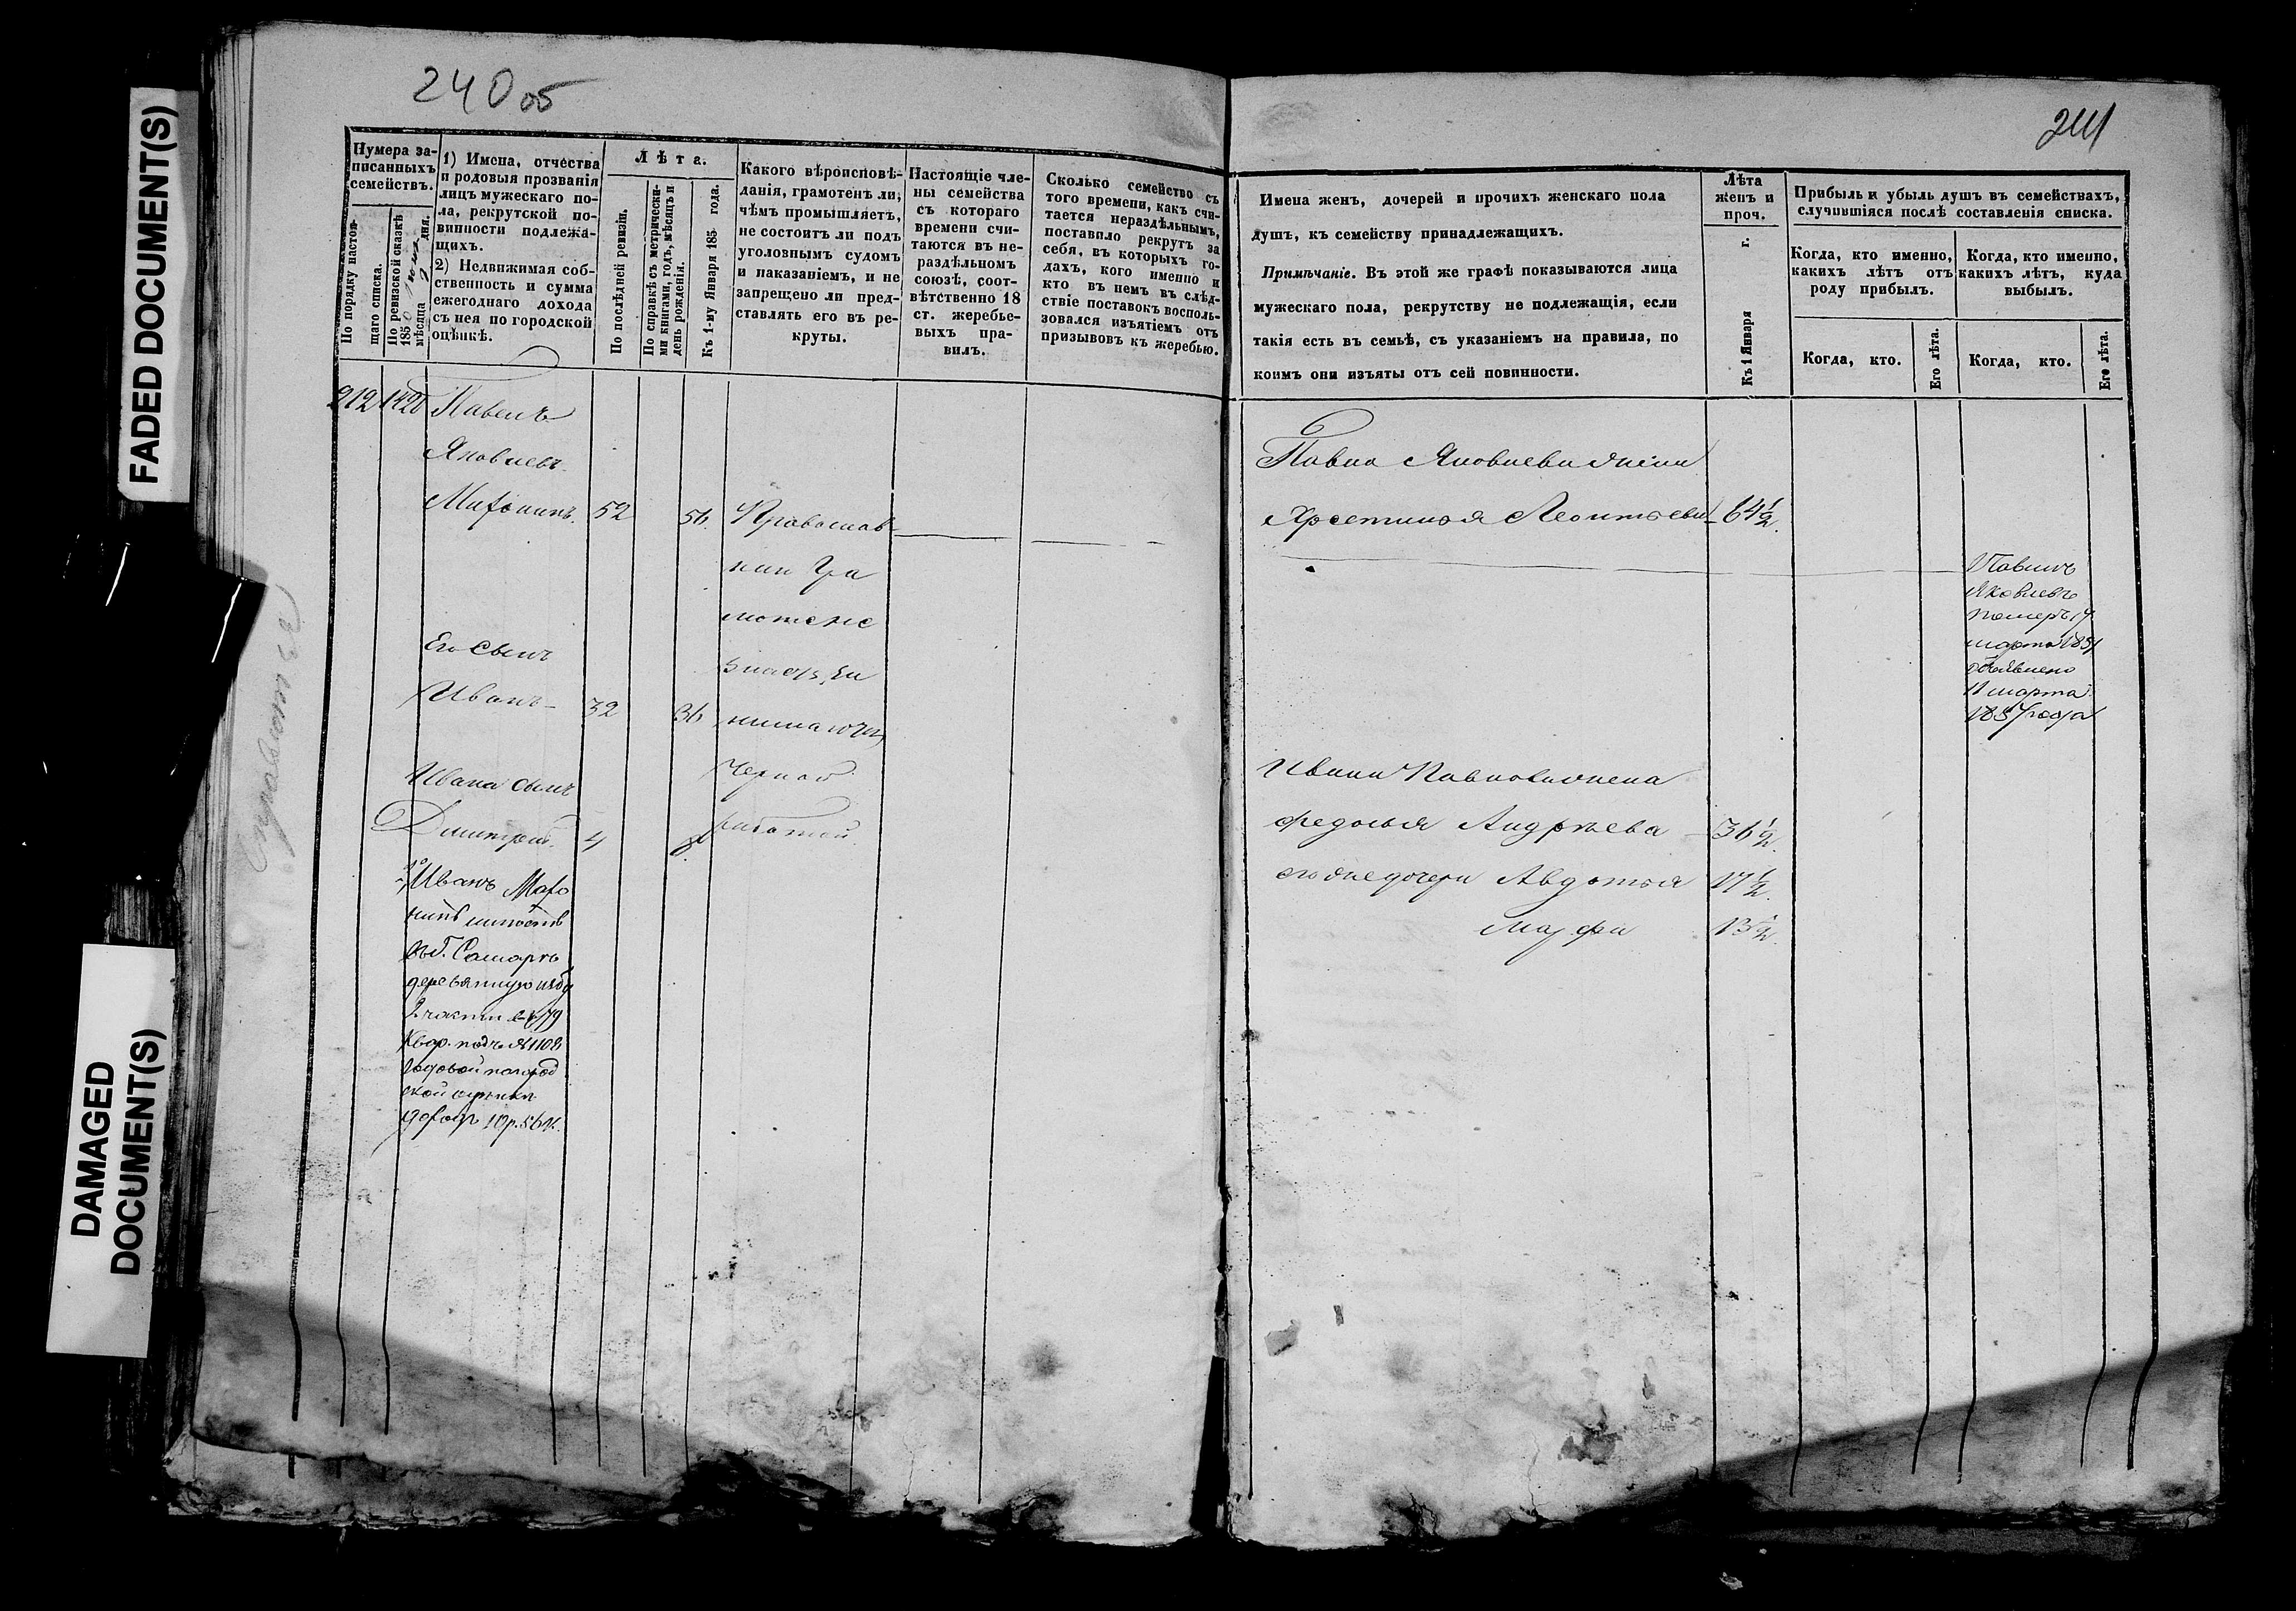 FADED DOCUMENT(S)
DAMAGED
DOCUMENT(S)
240 об
Нумера за-
писанныхъ
семействъ.
По порядку настоя-
щаго списка.
По ревизской сказкѣ
1850
мѣсяца дня.
1) Имена, отчества
и родовыя прозванія
лицъ мужескаго по-
ла, рекрутской по-
винности подлежа-
щихъ.
2) Недвижимая соб-
ственность и сумма
ежегоднаго дохода
съ нея по городской
оцѣнкѣ.
Лѣта.
По послѣдней ревизіи.
По справкѣ съ метрически-
ми книгами, годъ, мѣсяцъ и
день рожденія.
Къ 1-му Января 185 года.
Какого вѣроисповѣ-
данія, грамотенъ ли,
чѣмъ промышляетъ,
не состоитъ ли подъ
уголовнымъ судомъ
и наказаніемъ, и не
запрещено ли пред-
ставлять его въ ре-
круты.
Настоящіе чле-
ны семейства
съ котораго
времени счи-
таются въ не-
раздѣльномъ
союзѣ, соот-
вѣтственно 18
ст. жеребье-
выхъ пра-
вилъ.
Сколько семейство съ
того времени, какъ счи-
тается нераздѣльнымъ,
поставило рекрутъ за
себя, въ которыхъ го-
дахъ, кого именно и
кто въ немъ въ слѣд-
ствіе поставокъ восполь-
зовался изъятіемъ отъ
призывовъ къ жеребью.
212 1420 Павелъ
Яковлевъ
Мафонинъ. 52 56. Православ-
ный Гра
мотене
знаетъ, За
Его Сынъ
Иванъ 32 36 нимаются
Черной
работой.
Ивана сынъ
Дмитрій. 4 8
Иванъ Мафо
нинъ имѣетъ
въ Г. Самарѣ
деревянную избу
2 части въ 79
Квар. подъ № 1102
Годовой по город
ской оцѣнки
доходъ 10 р. 56 к.
241
Имена женъ, дочерей и прочихъ женскаго пола
душъ, къ семейству принадлежащихъ.
Примѣчаніе. Въ этой же графѣ показываются лица
мужескаго пола, рекрутству не подлежащія, если
такія есть въ семьѣ, съ указаніемъ на правила, по
коимъ они изъяты отъ сей повинности.
Лѣта
женъ и
проч.
Къ 1 Января г.
Прибыль и убыль душъ въ семействахъ,
случившіяся послѣ составленія списка.
Когда, кто именно,
какихъ лѣтъ отъ
роду прибылъ.
Когда, кто именно,
какихъ лѣтъ, куда
выбылъ.
Когда, кто.
Его лѣта.
Когда, кто.
Его лѣта.
Павла Яковлева жена
Хрестинья Леонтьева 64 1/2.
Павелъ
Яковлевъ
померъ 17
марта 1857
объявлено
11 марта
1857 года
Ивана Павлова жена
Федосья Андрѣева 36 1/2.
его дочери Авдотья 17 1/2.
Марфа 13 1/2.